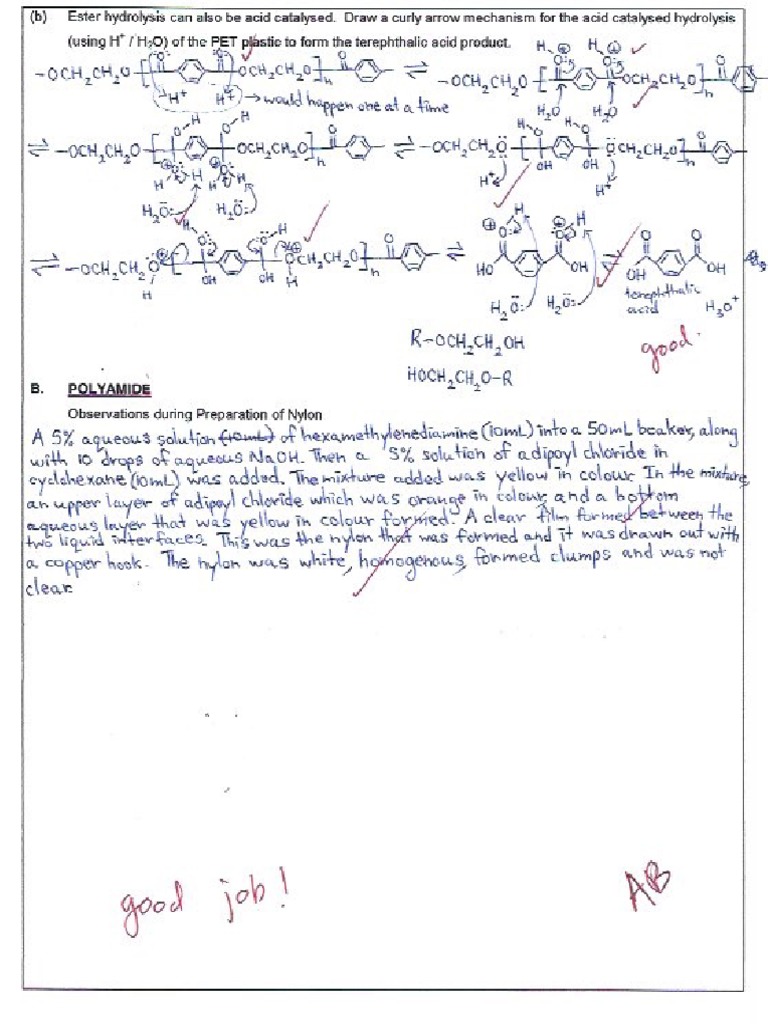 (b) Ester hydrolysis can also be acid catalysed. Draw a curly arrow mechanism for the acid catalysed hydrolysis
(using H⁺ / H₂O) of the PET plastic to form the terephthalic acid product.
-OCH₂CH₂O [ OCH₂CH₂O ]n ⇌ -OCH₂CH₂O [ OCH₂CH₂O ]n
H⁺ H⁺ → would happen one at a time H₂O H₂O
⇌ -OCH₂CH₂O [ OCH₂CH₂O ]n ⇌ -OCH₂CH₂Ö [ ÖCH₂CH₂O ]n
H₂Ö: H₂Ö: H⁺ H⁺
⇌ -OCH₂CH₂O OH OH OCH₂CH₂O ]n ⇌ HO OH ⇌ OH OH
H H H₂Ö: H₂Ö: terephthalic
acid H₃O⁺
R-OCH₂CH₂OH good.
HOCH₂CH₂O-R
B. POLYAMIDE
Observations during Preparation of Nylon
A 5% aqueous solution (10mL) of hexamethylenediamine (10mL) into a 50mL beaker, along
with 10 drops of aqueous NaOH. Then a 5% solution of adipoyl chloride in
cyclohexane (10mL) was added. The mixture added was yellow in colour. In the mixture,
an upper layer of adipoyl chloride which was orange in colour, and a bottom
aqueous layer that was yellow in colour formed. A clear film formed between the
two liquid interfaces. This was the nylon that was formed and it was drawn out with
a copper hook. The nylon was white, homogenous, formed clumps and was not
clear.
good job!
AB